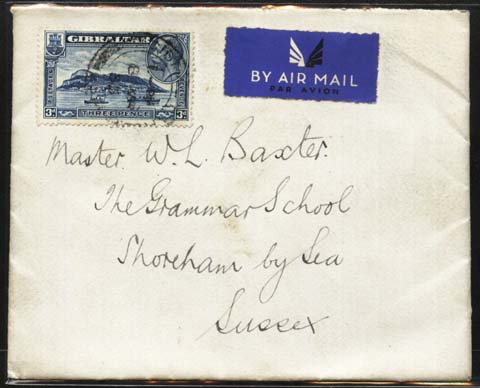 GIBRALTAR
3D THREEPENCE 3D
BY AIR MAIL
PAR AVION
Master. W. L. Baxter.
The Grammar School
Shoreham by Sea
Sussex